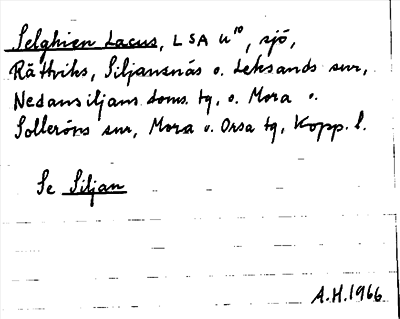 Selghien Lacus, LSA u¹⁰, sjö,
Rättviks, Siljansnäs o. Leksands snr,
Nedansiljans doms. tg, o. Mora o.
Solleröns snr, Mora o. Orsa tg, Kopp. l.
Se Siljan
A.H. 1966